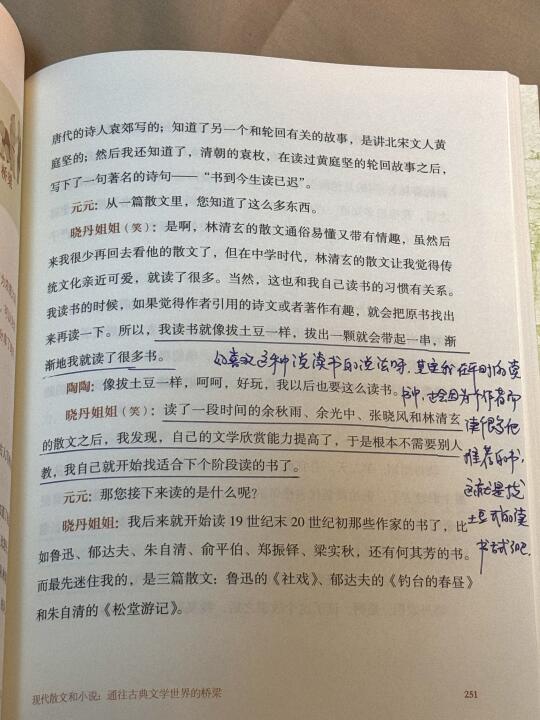 唐代的诗人袁郊写的；知道了另一个和轮回有关的故事，是讲北宋文人黄
庭坚的；然后我还知道了，清朝的袁枚，在读过黄庭坚的轮回故事之后，
写下了一句著名的诗句——“书到今生读已迟”。
元元：从一篇散文里，您知道了这么多东西。
晓丹姐姐（笑）：是啊，林清玄的散文通俗易懂又带有情趣，虽然后
来我很少再回去看他的散文了，但在中学时代，林清玄的散文让我觉得传
统文化亲近可爱，就读了很多。当然，这也和我自己读书的习惯有关系。
我读书的时候，如果觉得作者引用的诗文或者著作有趣，就会把原书找出
来再读一下。所以，我读书就像拔土豆一样，拔出一颗就会带起一串，渐
渐地我就读了很多书。
好喜欢这种说读书的说法呀，其实我在平时的读
书中，也会因为一个作者而
读了他
推荐的书，
这就是拔
土豆式的读
书方式吧
陶陶：像拔土豆一样，呵呵，好玩，我以后也要这么读书。
晓丹姐姐（笑）：读了一段时间的余秋雨、余光中、张晓风和林清玄
的散文之后，我发现，自己的文学欣赏能力提高了，于是根本不需要别人
教，我自己就开始找适合下个阶段读的书了。
元元：那您接下来读的是什么呢？
晓丹姐姐：我后来就开始读 19 世纪末 20 世纪初那些作家的书了，比
如鲁迅、郁达夫、朱自清、俞平伯、郑振铎、梁实秋，还有何其芳的书。
而最先迷住我的，是三篇散文：鲁迅的《社戏》、郁达夫的《钓台的春昼》
和朱自清的《松堂游记》。
现代散文和小说：通往古典文学世界的桥梁
251
桥梁